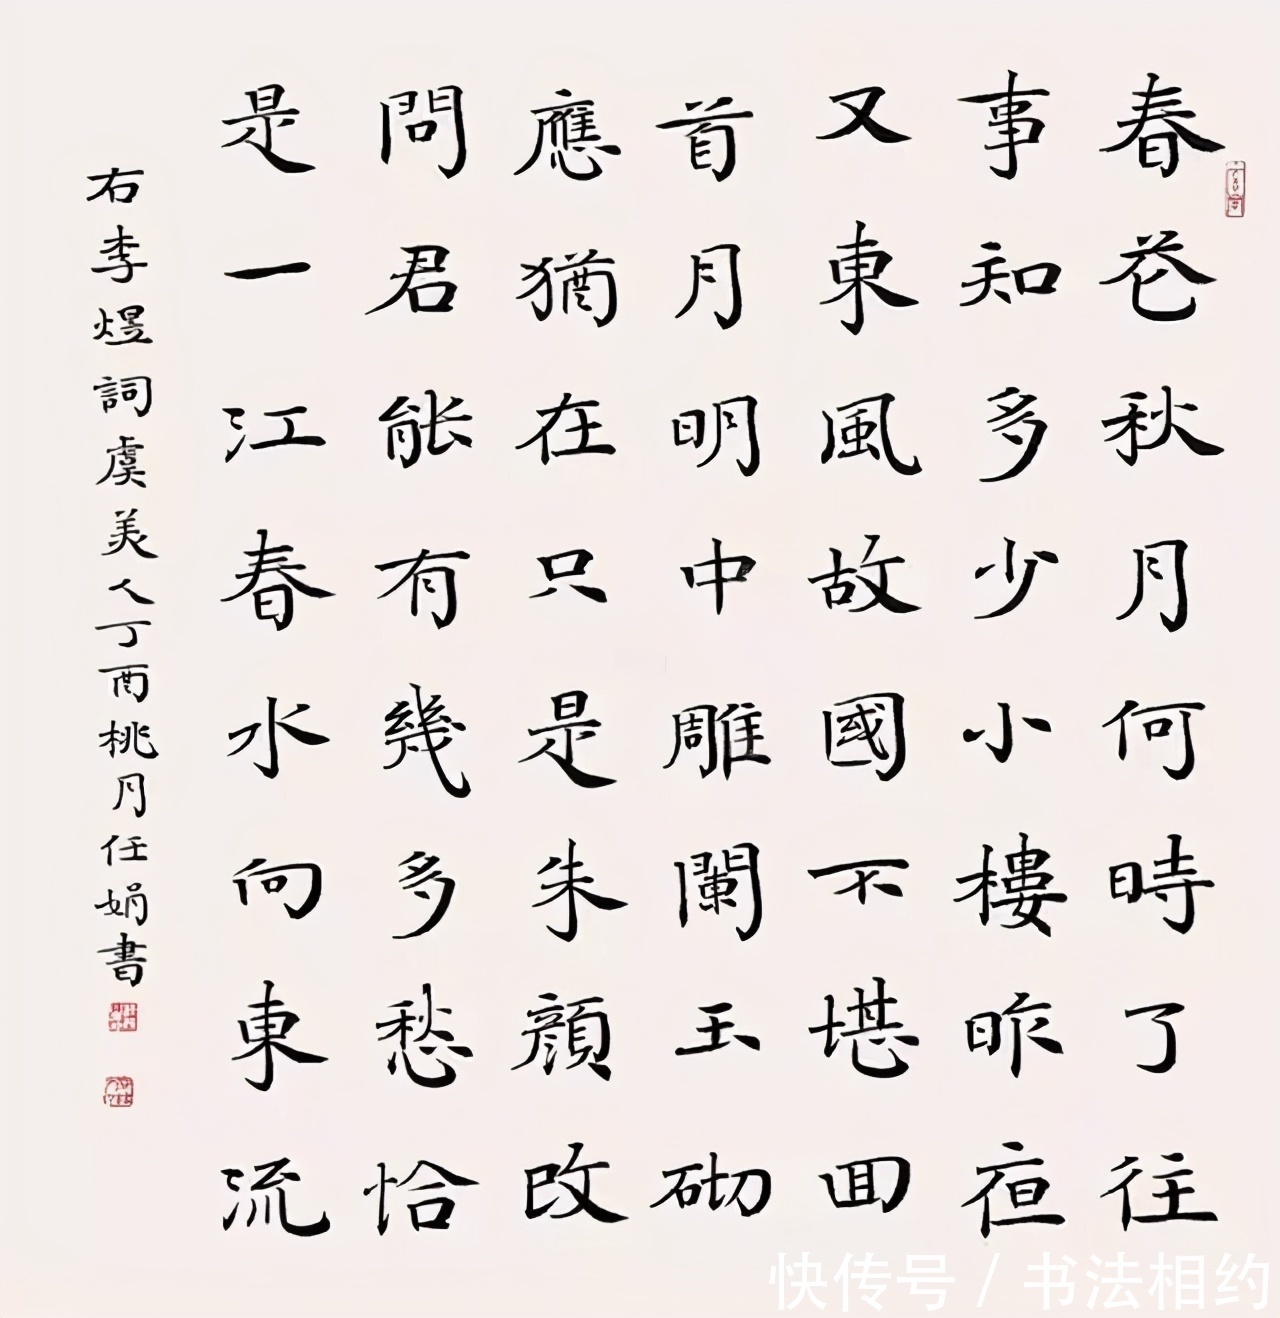 春花秋月何時了往
事知多少小樓昨夜
又東風故國不堪回
首月明中雕闌玉砌
應猶在只是朱顏改
問君能有幾多愁恰
是一江春水向東流
右李煜詞虞美人丁酉桃月任娟書
快传号 / 书法相约